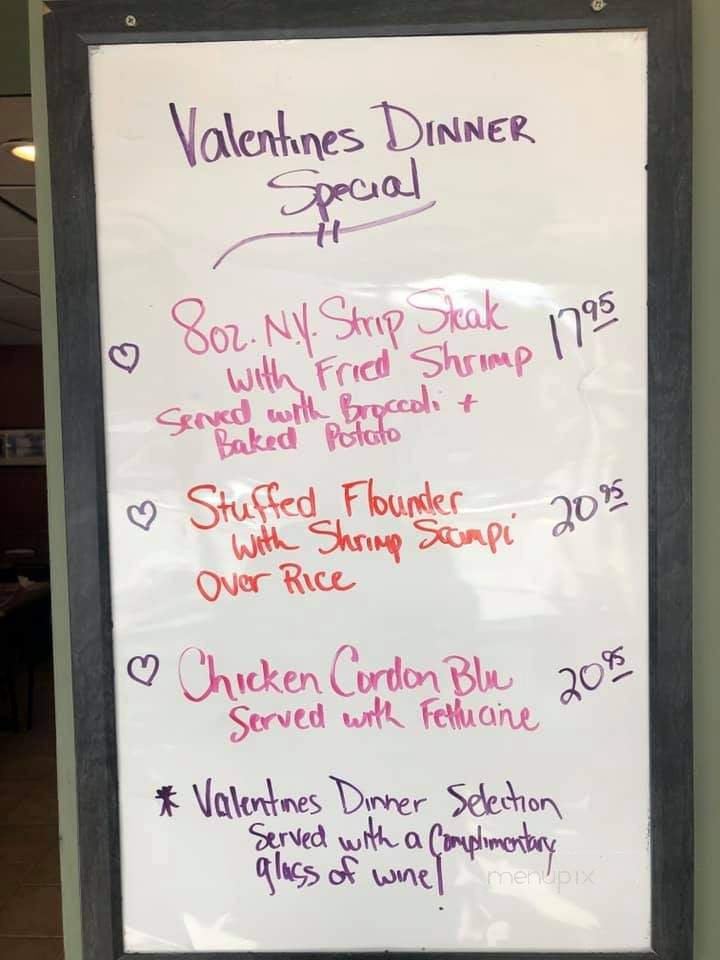 Valentines DINNER
Special
8oz. N.Y. Strip Steak
with Fried Shrimp 17 95
Served with Broccoli +
Baked Potato
Stuffed Flounder 20 95
with Shrimp Scampi
Over Rice
Chicken Cordon Blu 20 95
Served with Fettucine
* Valentines Dinner Selection
Served with a Complimentary
glass of wine!
menupix